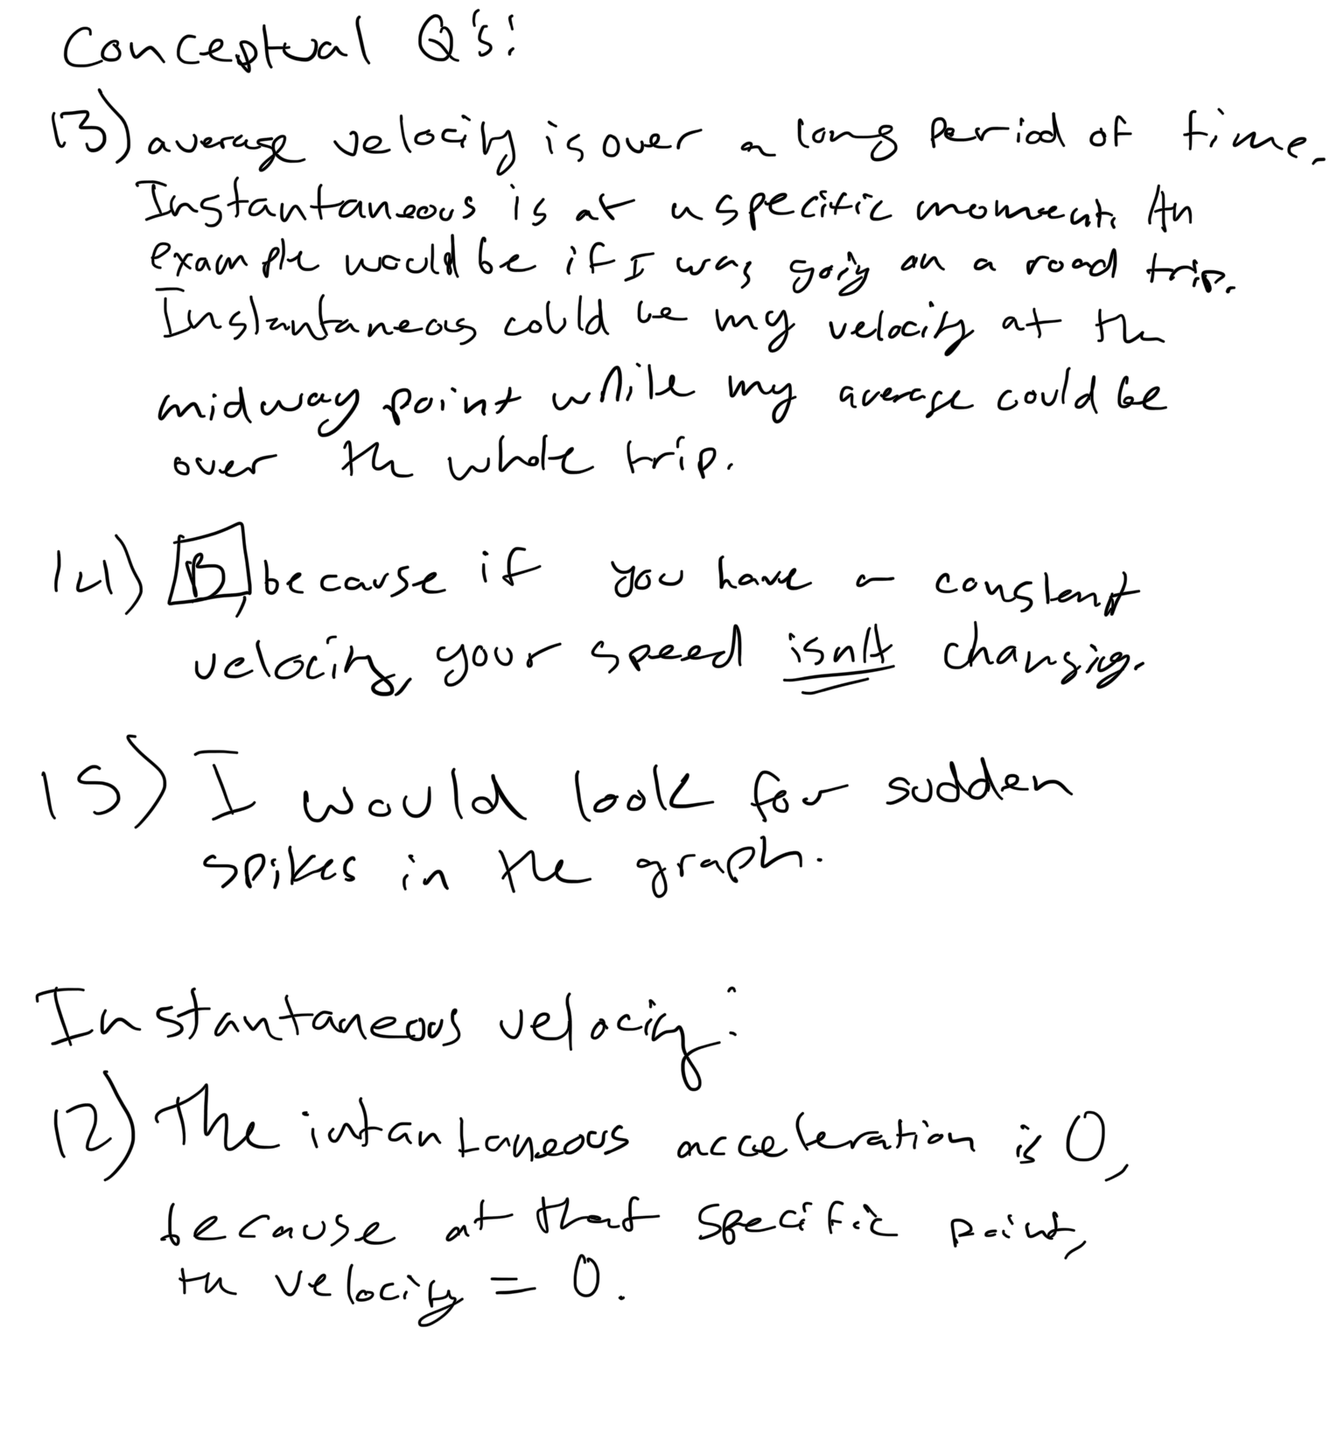 Conceptual Q's:
13) average velocity is over a long period of time.
Instantaneous is at a specific moment. An
example would be if I was going on a road trip.
Instantaneous could be my velocity at the
midway point while my average could be
over the whole trip.
14) B, because if you have a constant
velocity, your speed isn't changing.
15) I would look for sudden
spikes in the graph.
Instantaneous velocity:
12) The intantaneous acceleration is 0,
because at that specific point,
the velocity = 0.